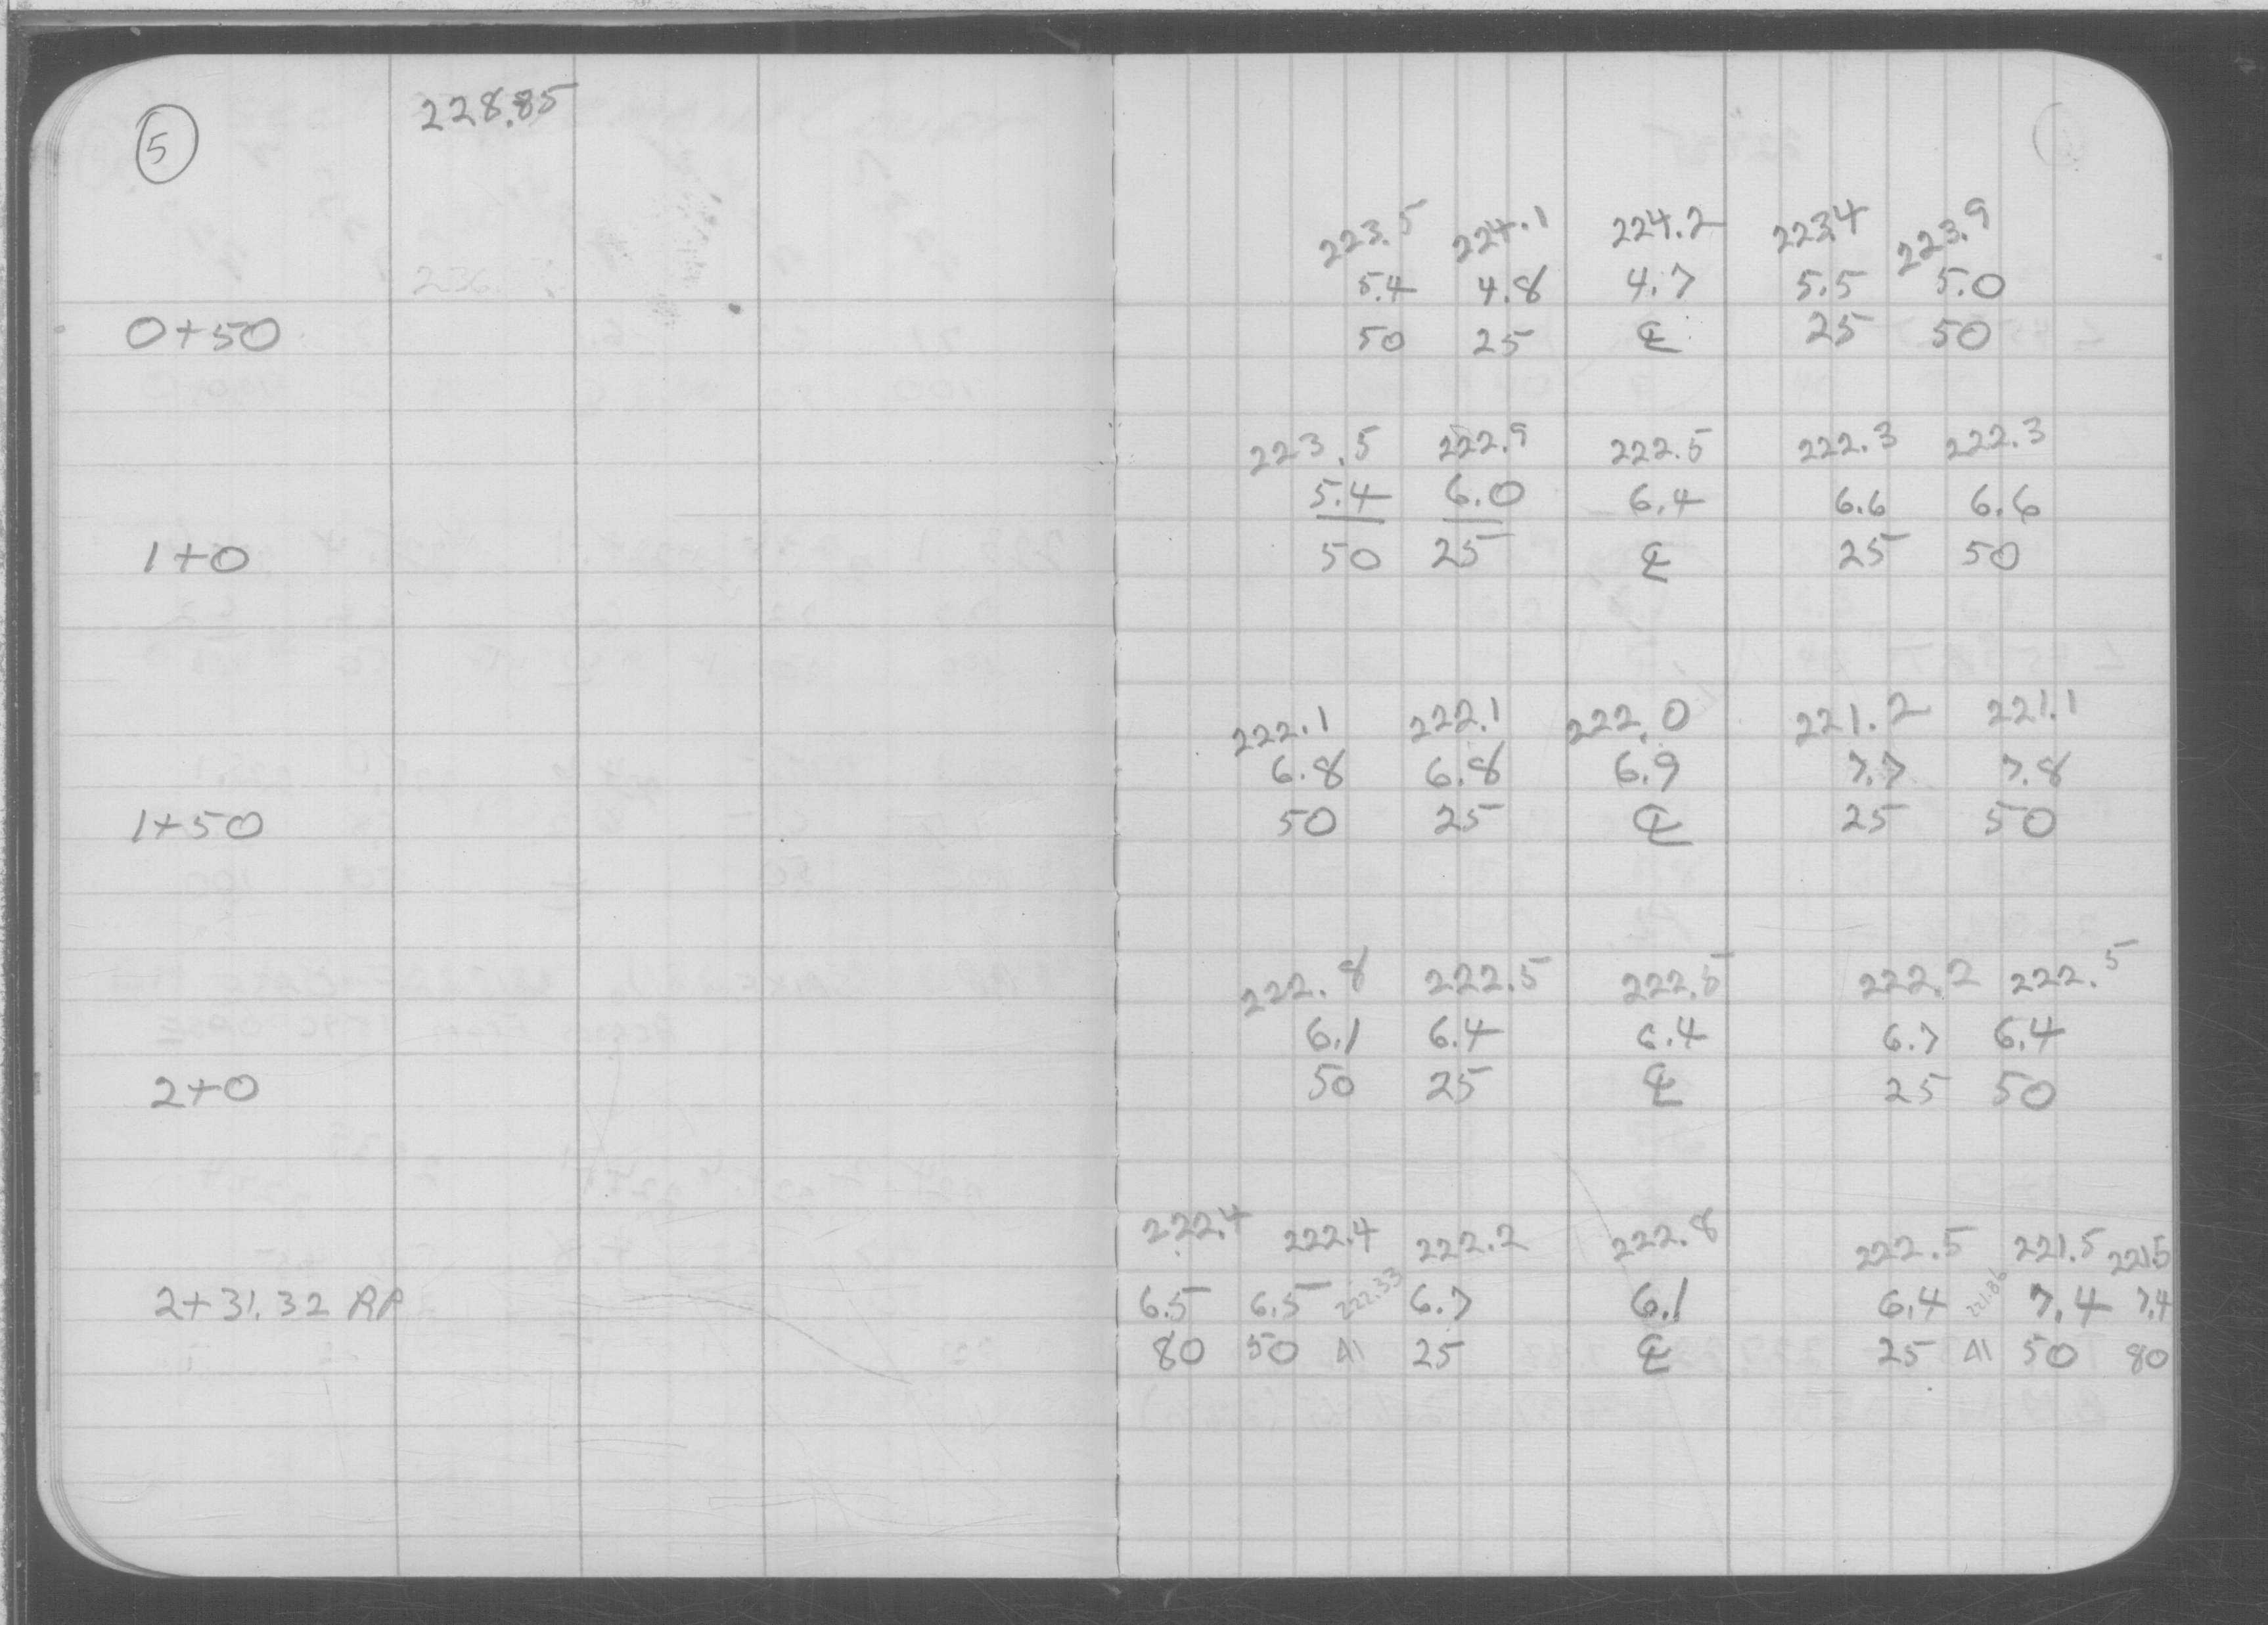 5 228.85
223.5 224.1 224.2 223.4 223.9
5.4 4.8 4.7 5.5 5.0
0+50 50 25 ℄ 25 50
223.5 222.9 222.5 222.3 222.3
5.4 6.0 6.4 6.6 6.6
1+0 50 25 ℄ 25 50
222.1 222.1 222.0 221.2 221.1
6.8 6.8 6.9 7.7 7.8
1+50 50 25 ℄ 25 50
222.8 222.5 222.5 222.2 222.5
6.1 6.4 6.4 6.7 6.4
2+0 50 25 ℄ 25 50
222.4 222.4 222.2 222.8 222.5 221.5 221.5
2+31.32 6.5 6.5 222.33 6.7 6.1 6.4 221.86 7.4 7.4
80 50 41 25 ℄ 25 41 50 80